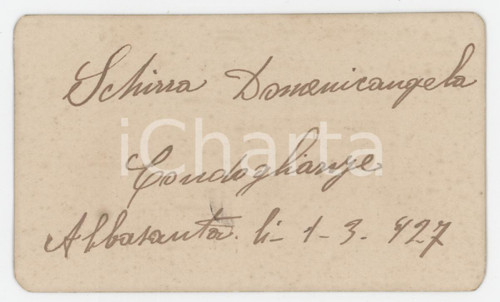 Schirra Domenicangela
iCharta
Condoglianze
Abbasanta. li- 1-3-927